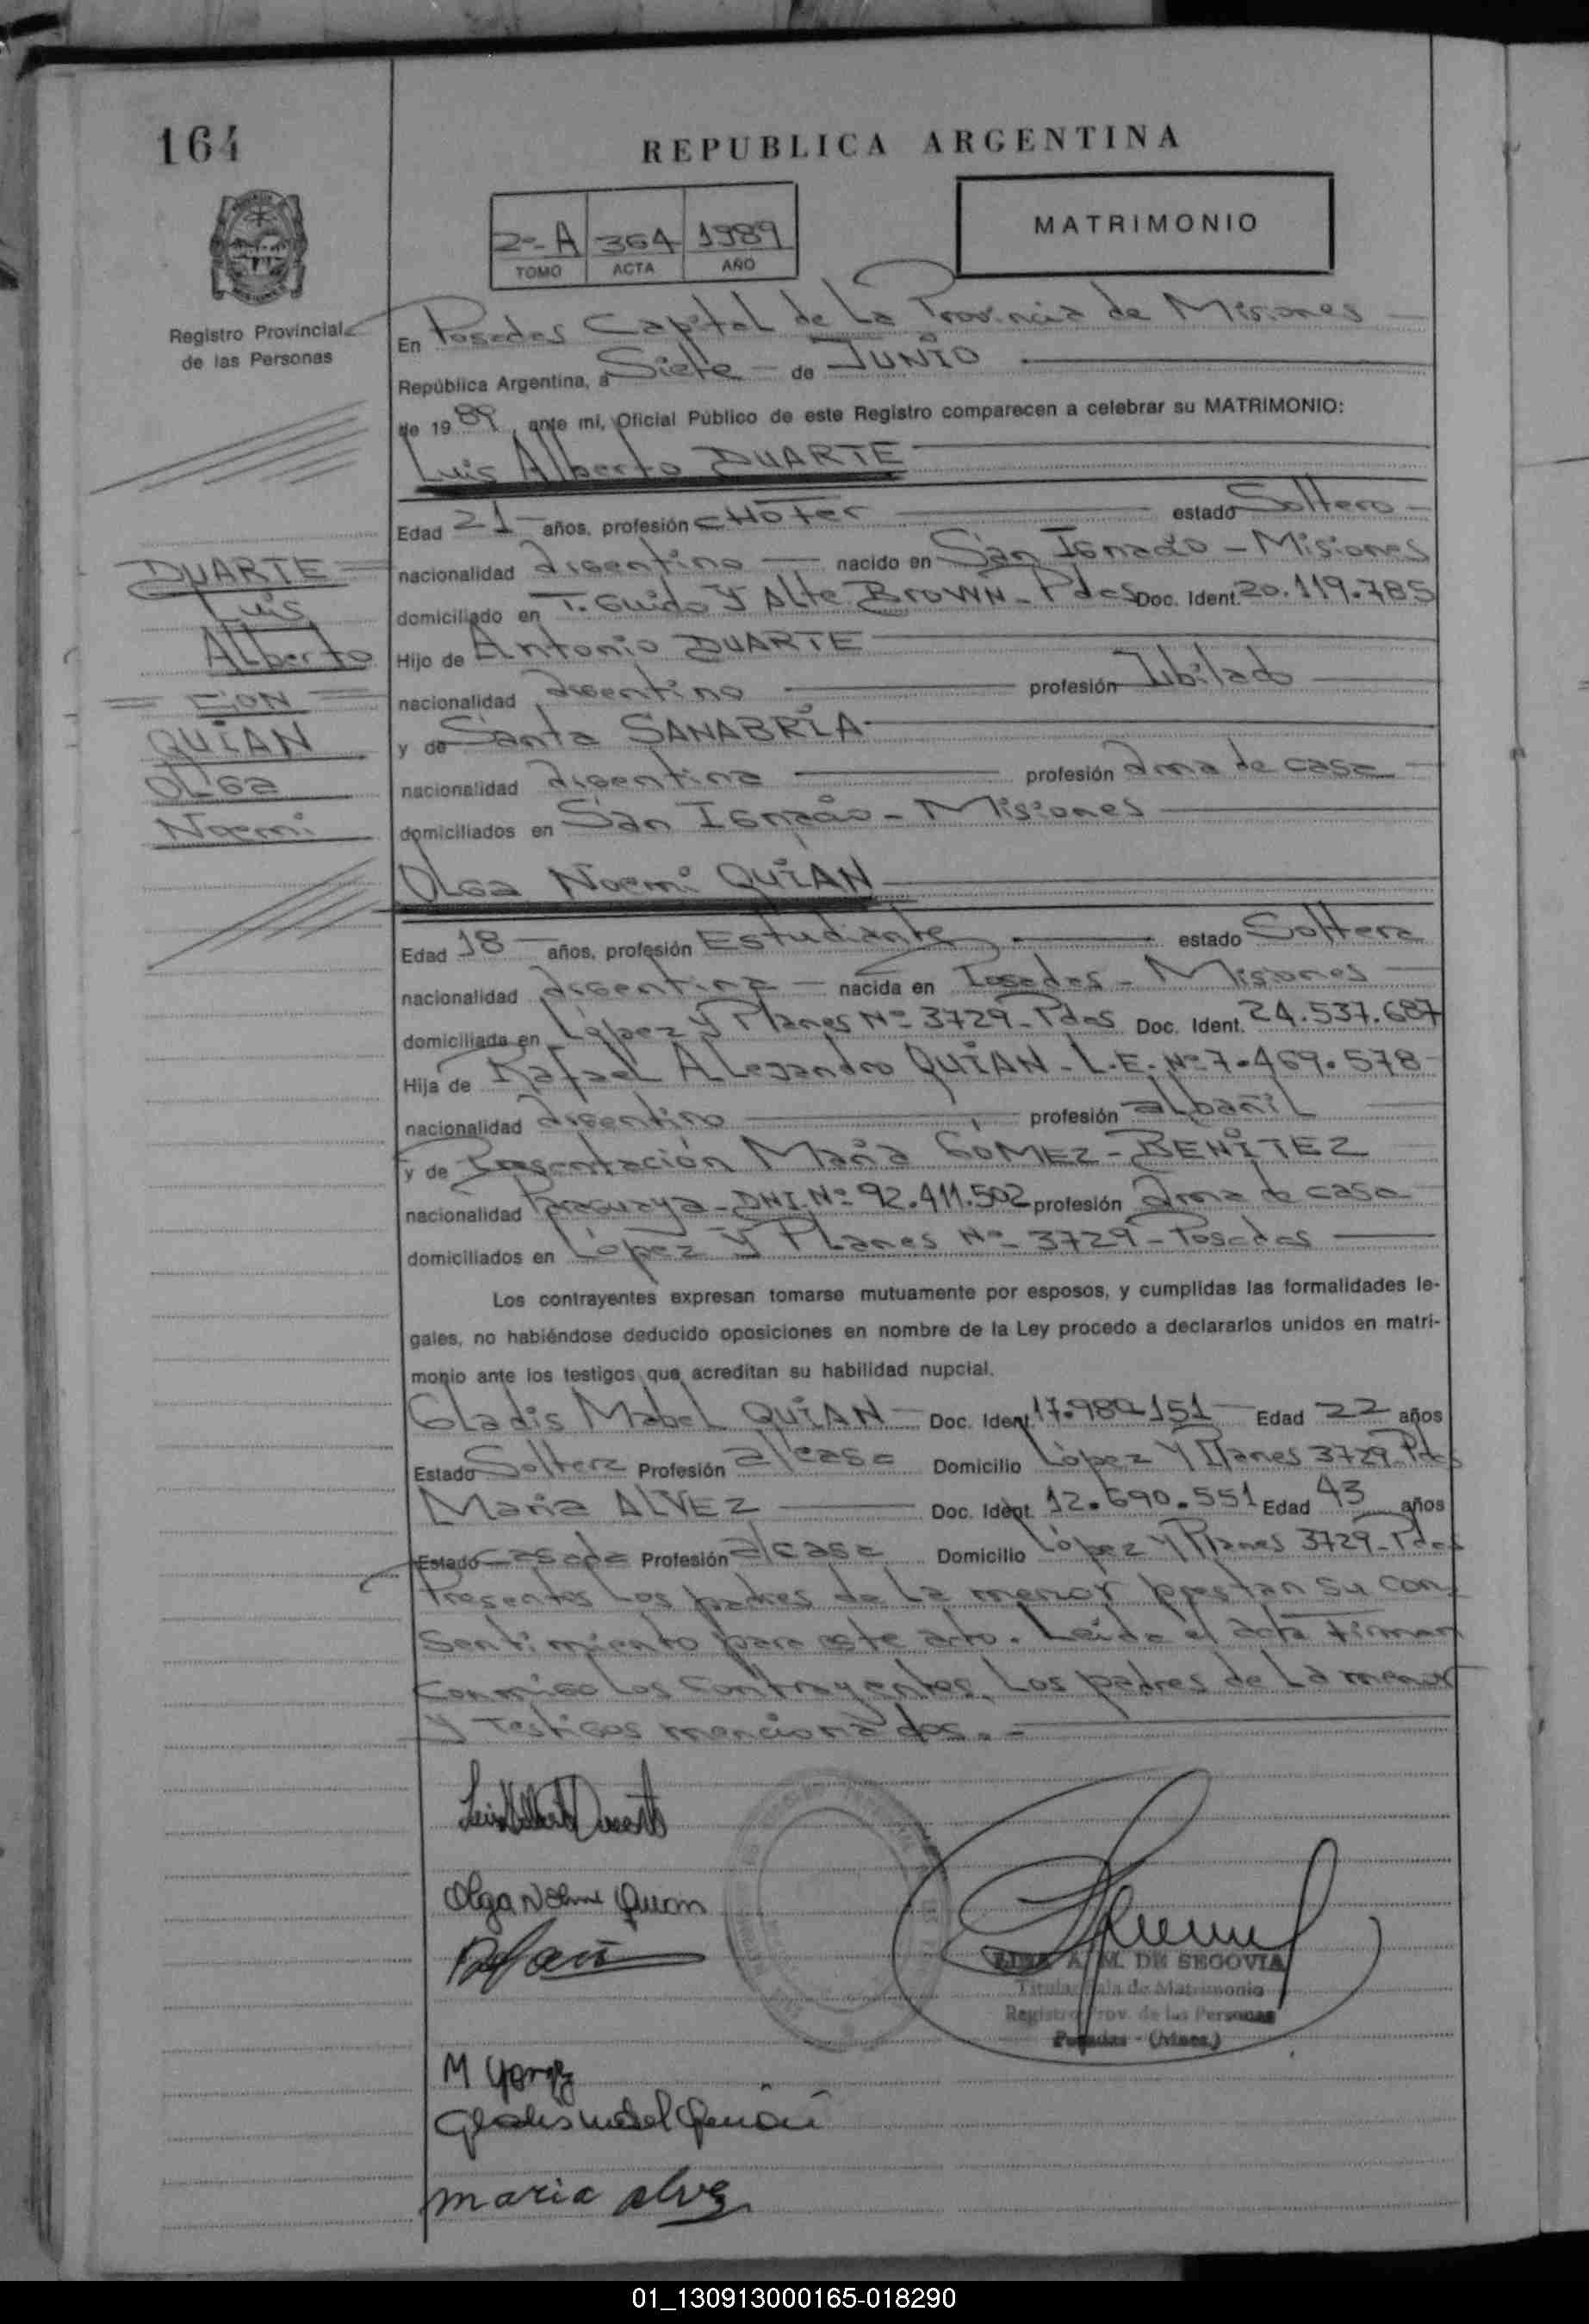 164
REPUBLICA ARGENTINA
2º-A 364 1989
TOMO ACTA AÑO
MATRIMONIO
Registro Provincial
de las Personas
En Posadas Capital de La Provincia de Misiones
República Argentina, a Siete - de JUNIO
de 1989, ante mí, Oficial Público de este Registro comparecen a celebrar su MATRIMONIO:
Luis Alberto DUARTE
Edad 21 años, profesión CHOFER estado Soltero
DUARTE
Luis
Alberto
CON
QUIAN
OLGA
Noemi
nacionalidad argentino nacido en San Ignacio - Misiones
domiciliado en T. Guido Y Alte BROWN - Pdas Doc. Ident. 20.119.785
Hijo de Antonio DUARTE
nacionalidad argentino profesión Jubilado
y de Santa SANABRIA
nacionalidad argentina profesión ama de casa
domiciliados en San Ignacio - Misiones
OLGA Noemi QUIAN
Edad 18 años, profesión Estudiante estado Soltera
nacionalidad argentina nacida en Posadas - Misiones
domiciliada en López Y Planes Nº 3729 - Pdas Doc. Ident. 24.537.687
Hija de Rafael ALejandro QUIAN - L.E. Nº 7.469.578
nacionalidad argentino profesión albañil
y de Presentación María GOMEZ - BENITEZ
nacionalidad Paraguaya - DNI. Nº 92.411.502 profesión ama de casa
domiciliados en López Y PLanes Nº 3729 - Posadas
Los contrayentes expresan tomarse mutuamente por esposos, y cumplidas las formalidades le-
gales, no habiéndose deducido oposiciones en nombre de la Ley procedo a declararlos unidos en matri-
monio ante los testigos que acreditan su habilidad nupcial.
Gladis Mabel QUIAN Doc. Ident. 17.980.151 Edad 22 años
Estado Soltera Profesión a/casa Domicilio López Y Planes 3729 - Pdas
María ALVEZ Doc. Ident. 12.690.551 Edad 43 años
Estado casada Profesión a/casa Domicilio López Y Planes 3729 - Pdas
Presentes Los padres de La menor prestan su con-
sentimiento para este acto. Leída el acta Firman
conmigo Los contrayentes, Los padres de La menor
y testigos mencionados. -
Luis Alberto Duarte
Olga Noemi Quian
M Gomez
Gladis Mabel Quian
maria alvez
A. M. DE SEGOVIA
Titular Sala de Matrimonio
Registro Prov. de las Personas
Posadas - (Mnes.)
01_130913000165-018290